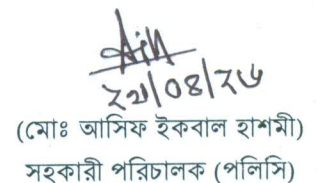 ২১/০৪/২৬
(মোঃ আসিফ ইকবাল হাশমী)
সহকারী পরিচালক (পলিসি)